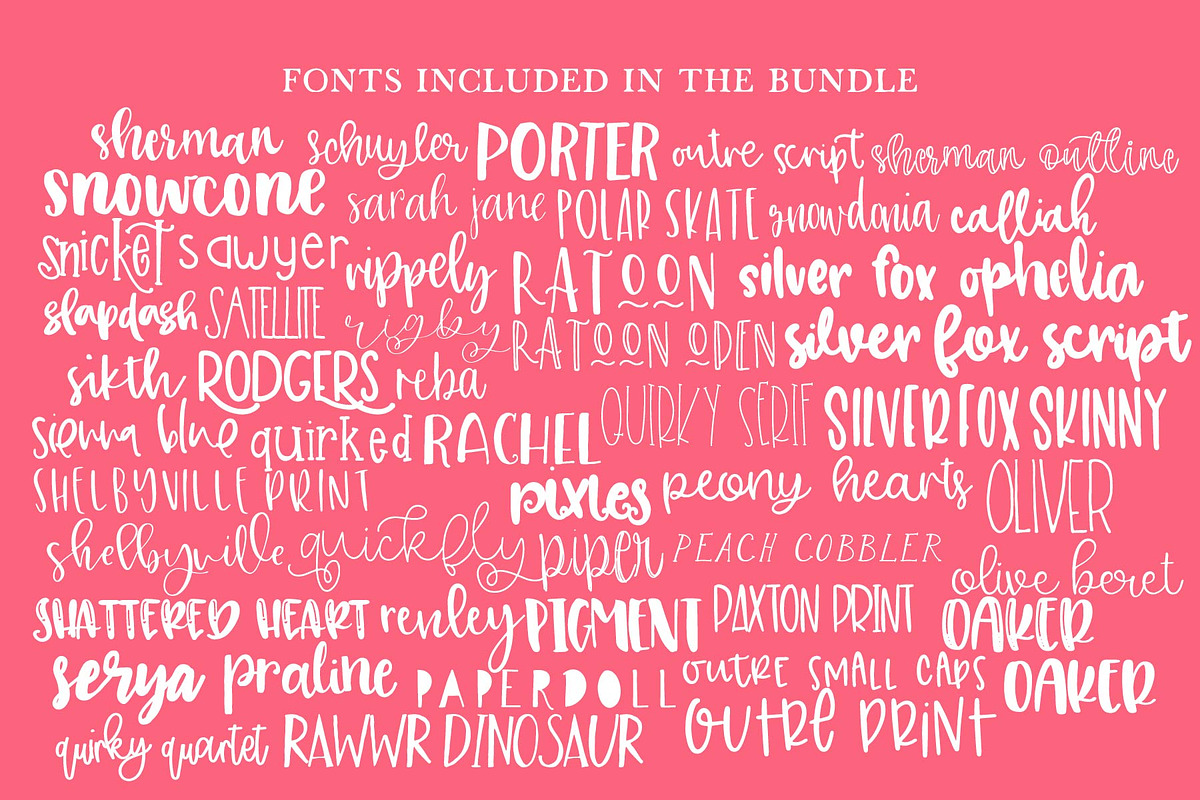 FONTS INCLUDED IN THE BUNDLE
sherman schuyler PORTER outre script sherman outline
snowcone sarah jane POLAR SKATE snowdonia calliah
snicket sawyer rippely RATOON silver fox ophelia
slapdash SATELLITE rigby RATOON OPEN silver fox script
sikth RODGERS reba QUIRKY SERIF SILVER FOX SKINNY
sienna blue quirked RACHEL
SHELBYVILLE PRINT pixies peony hearts OLIVER
shelbyville quickfly piper PEACH COBBLER olive beret
SHATTERED HEART renley PIGMENT PAXTON PRINT OAKER
serya praline PAPERDOLL OUTRE SMALL CAPS OAKER
quirky quartet RAWWR DINOSAUR OUTRE PRINT